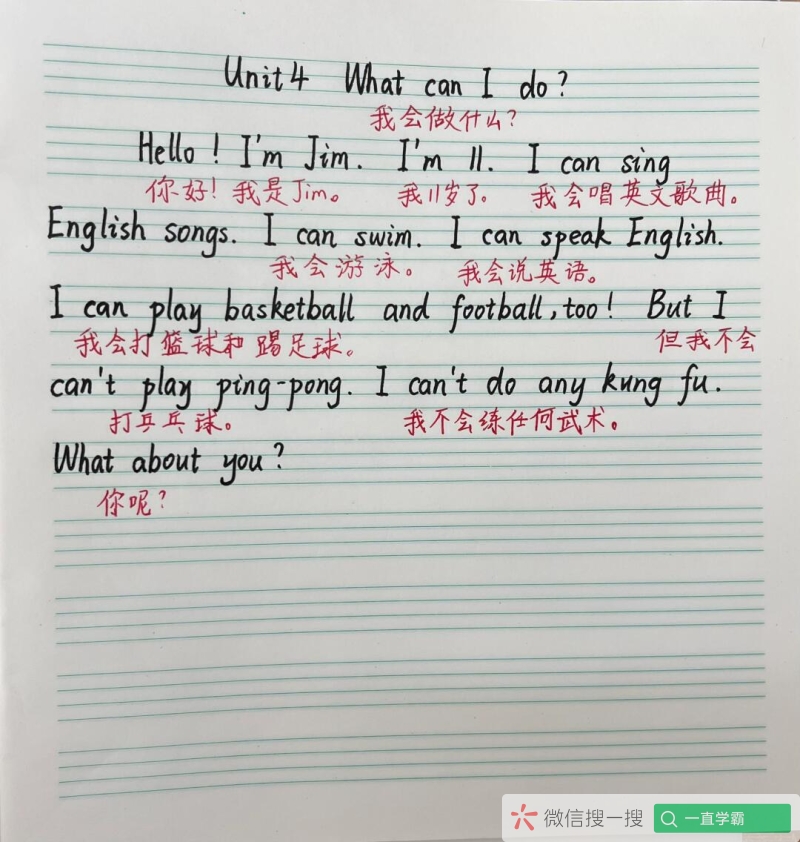 Unit 4 What can I do?
我会做什么?
Hello! I'm Jim. I'm 11. I can sing
你好!我是Jim。 我11岁了。 我会唱英文歌曲。
English songs. I can swim. I can speak English.
我会游泳。 我会说英语。
I can play basketball and football, too! But I
我会打篮球和踢足球。 但我不会
can't play ping-pong. I can't do any kung fu.
打乒乓球。 我不会练任何武术。
What about you?
你呢?
微信搜一搜 一直学霸